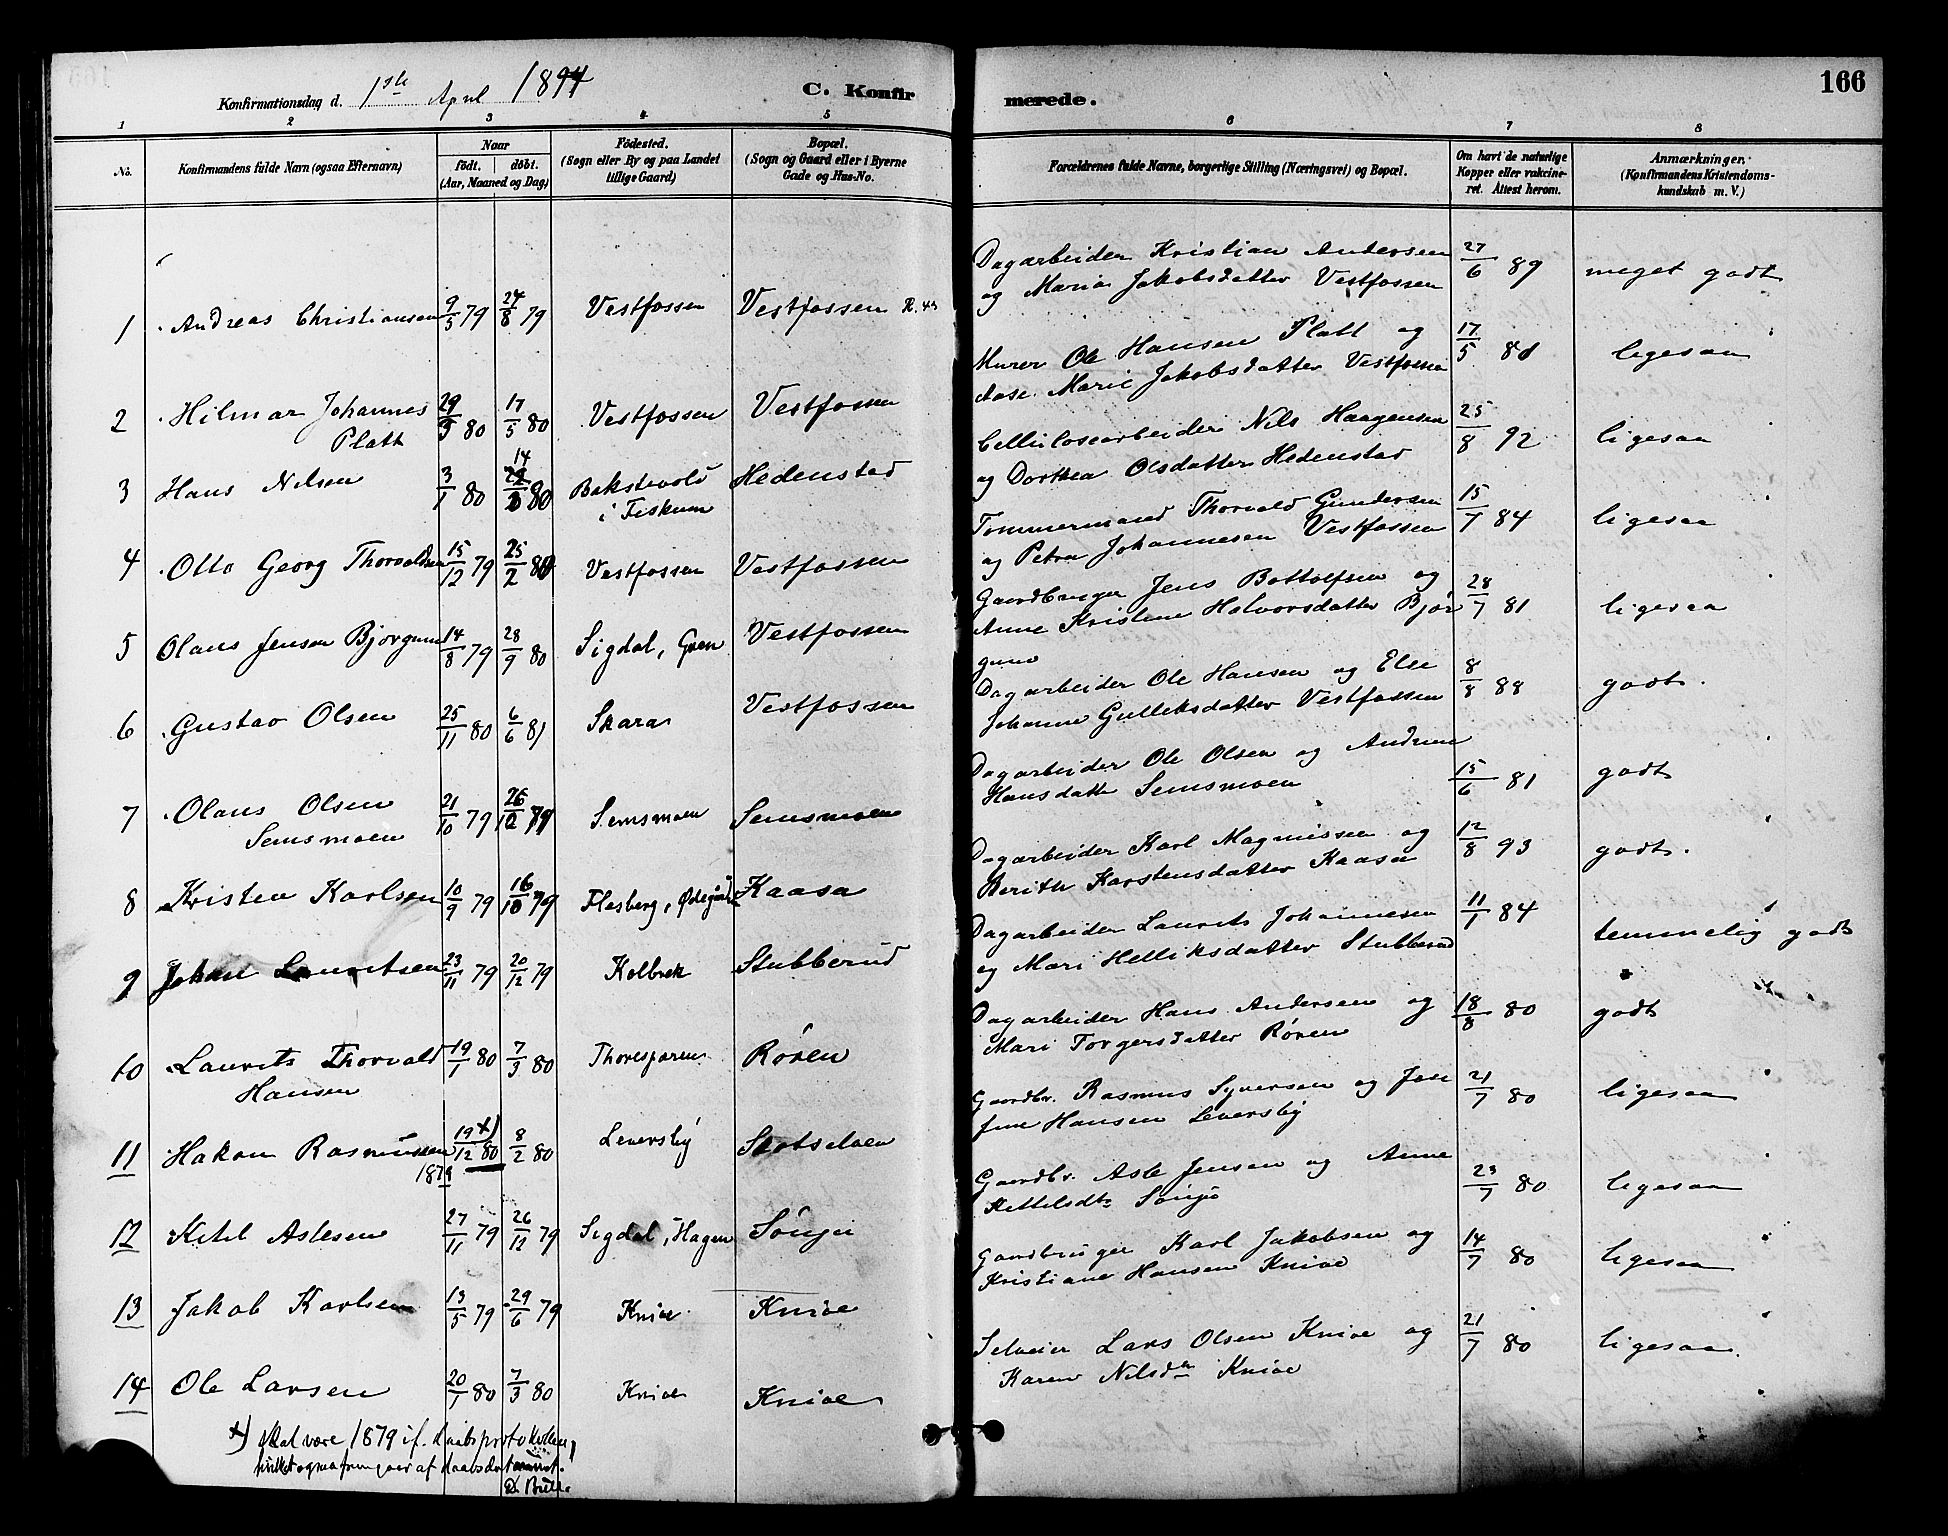 Konfirmationsdag d. 1ste April 1894
C. Konfirmerede.
166
1 2 3 4 5 6 7 8
No.
Konfirmandens fulde Navn (ogsaa Efternavn)
Naar
født. døbt.
(Aar, Maaned og Dag)
Födested.
(Sogn eller By og paa Landet
tillige Gaard)
Bopæl.
(Sogn og Gaard eller i Byerne
Gade og Hus-No.
Forældrenes fulde Navne, borgerlige Stilling (Næringsvei) og Bopæl.
Om havt de naturlige
Kopper eller vakcine-
ret. Attest herom.
Anmærkninger.
(Konfirmandens Kristendoms-
kundskab m. V.)
1 Andreas Christiansen 9/5 79 24/8 79 Vestfossen Vestfossen
Dagarbeider Kristian Andersen
og Maria Jakobsdatter Vestfossen 27/6 89 meget godt
2 Hilmar Johannes
Platt 29/3 80 17/5 80 Vestfossen Vestfossen
Murer Ole Hansen Platt og
Marie Jakobsdatter Vestfossen 17/5 81 ligesaa
3 Hans Nilsen 3/1 80 14 80 Bakstevold
i Fiskum Hedenstad
Cellulosearbeider Nils Haagensen
og Dorthea Olsdatter Hedenstad 25/8 92 ligesaa
4 Otto Georg Thorvaldsen 15/12 79 25/2 80 Vestfossen Vestfossen
Tømmermand Thorvald Gundersen
og Petra Johannesen Vestfossen 15/7 84 ligesaa
5 Olaus Jensen Bjørgum 14/8 79 28/9 80 Sigdal, Vestfossen
Gaardbruger Jens Bottolfsen og
Anne Kristene Halvorsdatter Bjør
gum 28/7 81 ligesaa
6 Gustav Olsen 25/11 80 6/6 81 Skara Vestfossen
Dagarbeider Ole Hansen og Else
Johanne Gulliksdatter Vestfossen 8/8 88 godt.
7 Olaus Olsen
Semsmoen 21/10 79 26/12 79 Semsmoen Semsmoen
Dagarbeider Ole Olsen og Andrine
Hansdatter Semsmoen 15/6 81 godt
8 Kristen Karlsen 10/9 79 16/10 79 Flesberg, Ødegaard Kaasa
Dagarbeider Karl Magnussen og
Berith Karstensdatter Kaasa 12/8 93 godt.
9 Johan Lauritsen 23/11 79 20/12 79 Kolbrek Stubberud
Dagarbeider Laurits Johannesen
og Mari Helliksdatter Stubberud 11/1 84 temmelig godt
10 Laurits Thorvald
Hansen 19/1 80 7/3 80 Røren
Dagarbeider Hans Andersen og
Mari Torgersdatter Røren 18/8 80 godt
11 Hakon Rasmussen 19/12 80 x) 8/2 80 Leversby
1879
Gaardbr. Rasmus Syversen og Jose
fine Hansen Leversby 21/7 80 ligesaa
12 Ketil Aslesen 27/11 79 26/12 79 Sigdal, Hagen Sønju
Gaardbr. Asle Jensen og Anne
Kittelsdtr Sønju 23/7 80 ligesaa
13 Jakob Karlsen 13/5 79 29/6 79 Knive Knive
Gaardbruger Karl Jakobsen og
Kristiane Hansen Knive 14/7 80 ligesaa
14 Ole Larsen 20/1 80 7/3 80 Knive Knive
Selveier Lars Olsen Knive og
Karen Nilsdr Knive 21/7 80 ligesaa.
x) skal være 1879 if. daabsprotokollen,
hvilket ogsaa fremgaar af daabsdatoen